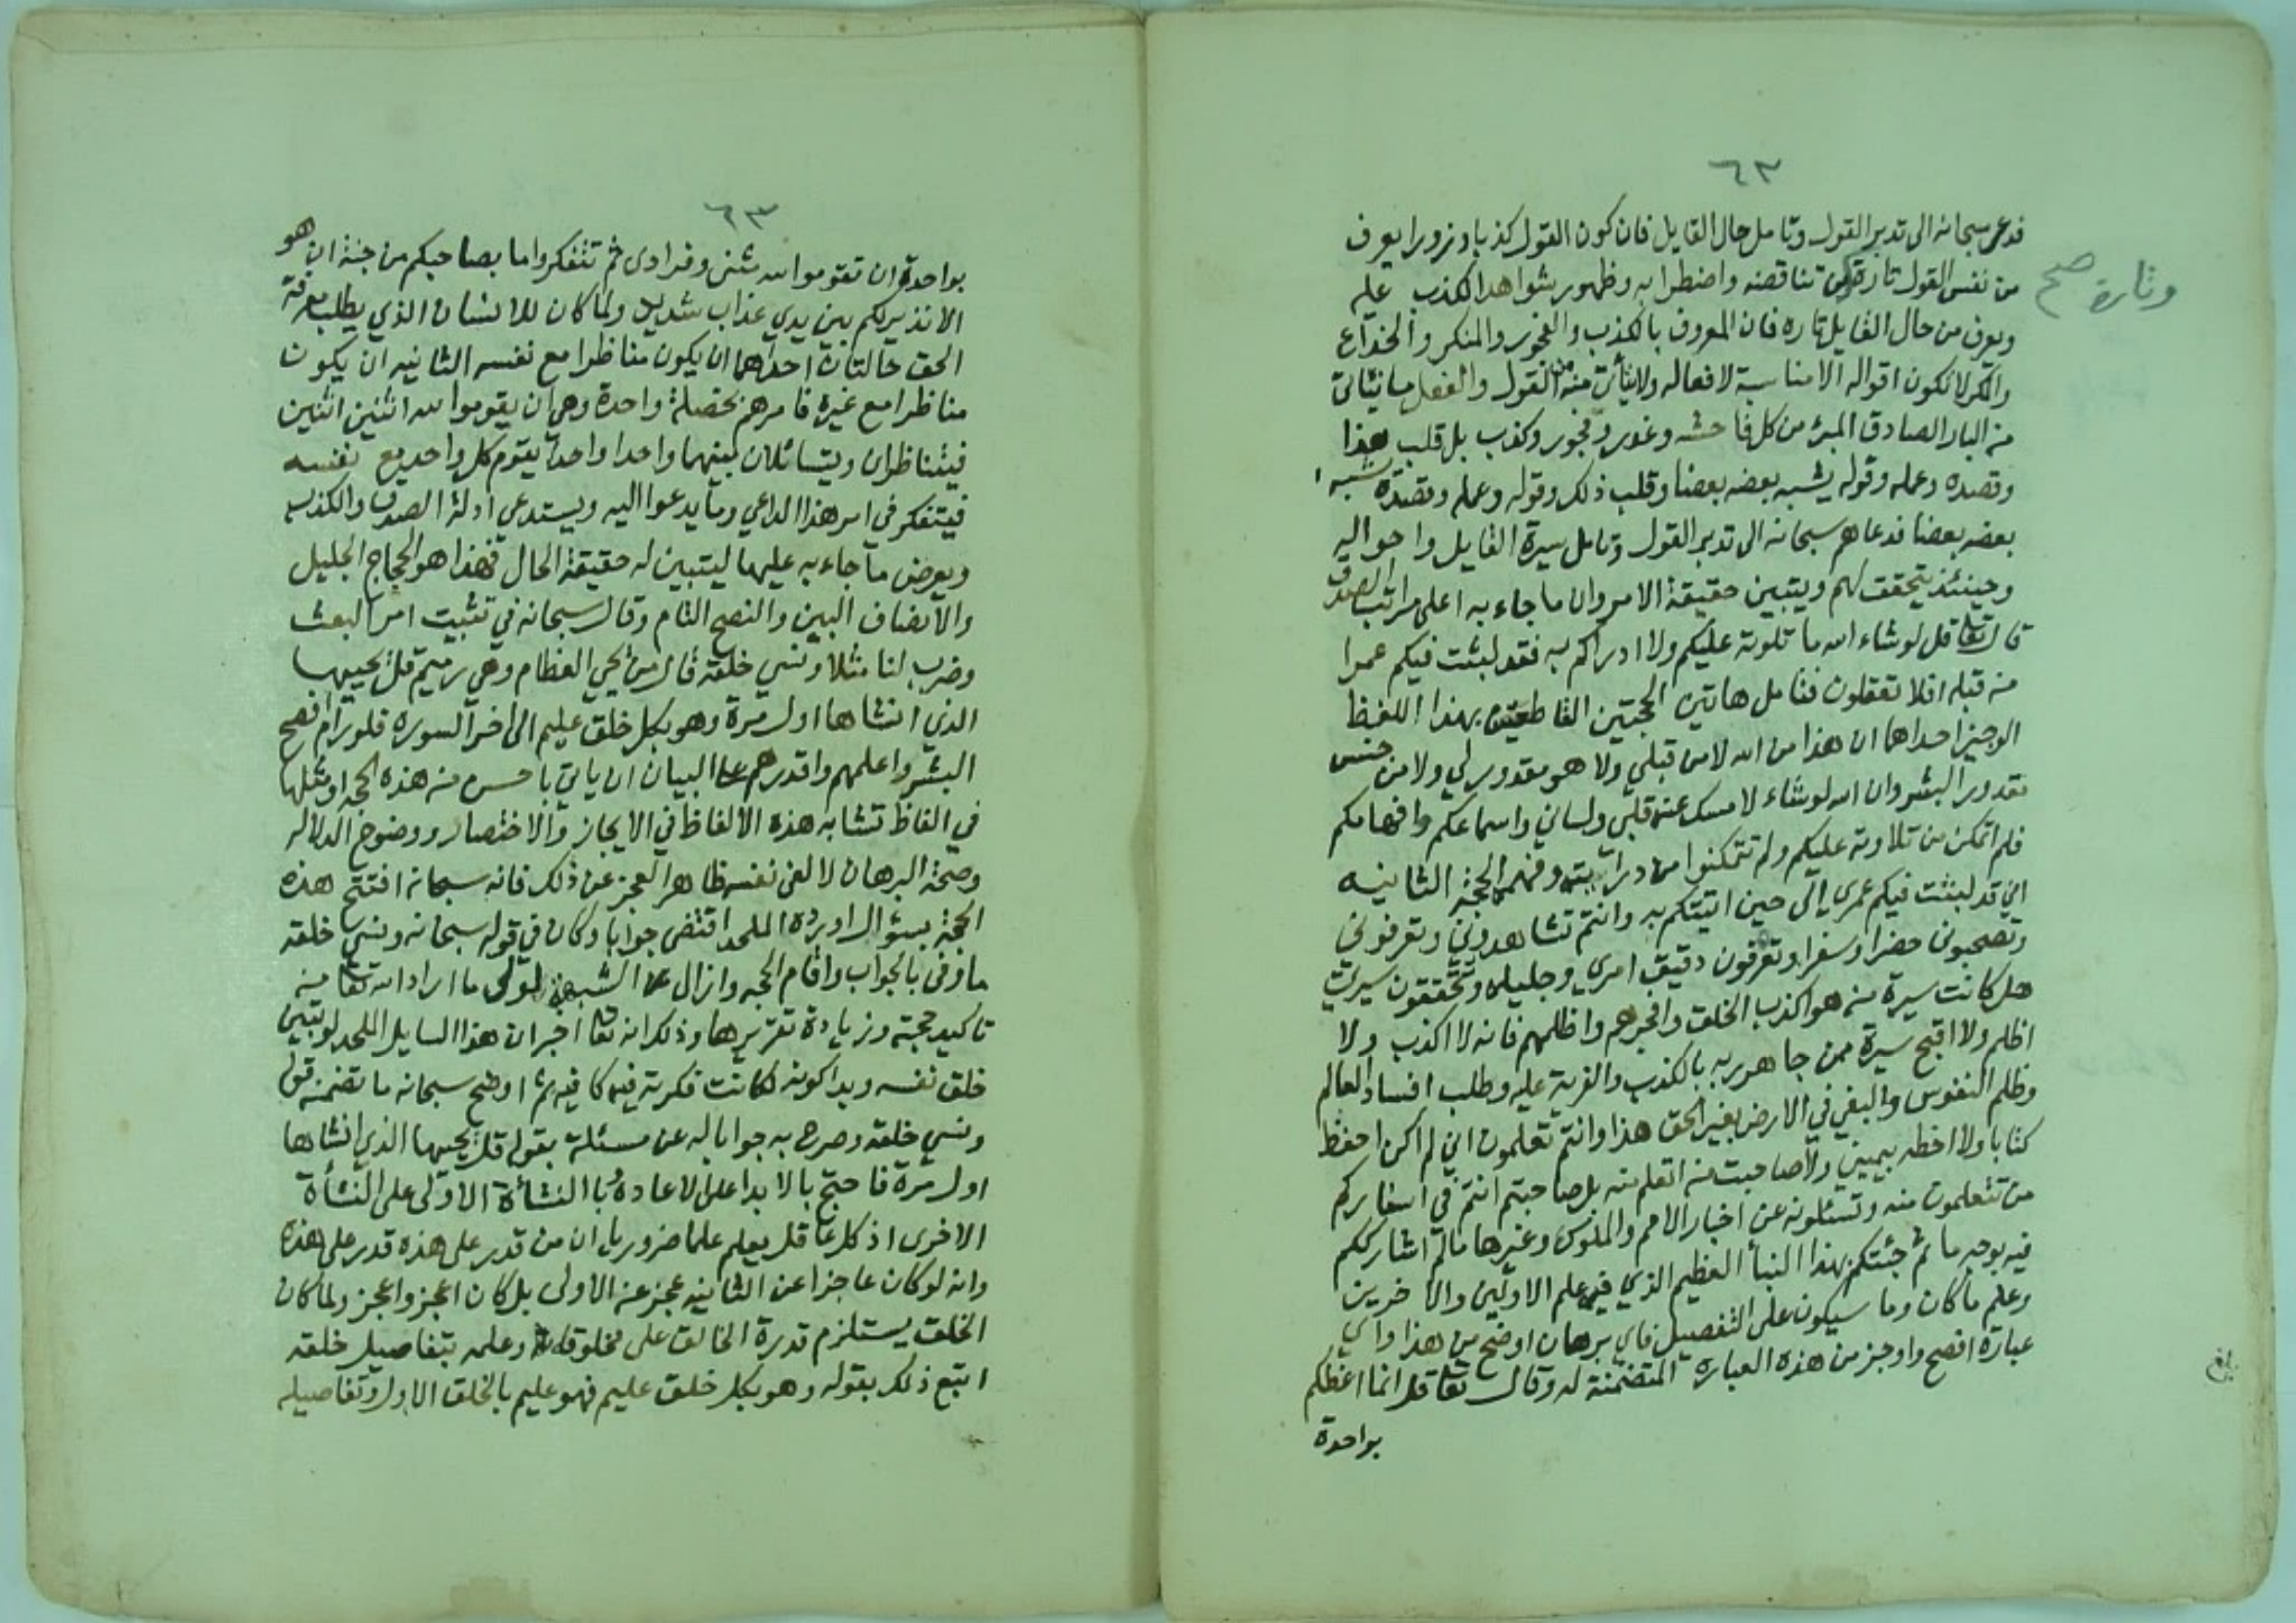 ٦٣
فدعى سبحانه الى تدبر القول وتامل حال القايل فان كون القول كذبا وزورا يعرف
من نفس القول تارة من تناقضه واضطرابه وظهور شواهد الكذب عليه
وتارة صح
ويعرف من حال القايل تارة فان المعروف بالكذب والفجور والمنكر والخداع
والمكر لا تكون اقواله الا مناسبة لافعاله ولا يتأتى منه من القول والفعل ما يتاتى
من البار الصادق المبرء من كل فاحشه وغدر وفجور وكذب بل قلب هذا
وقصده وعمله وقوله يشبه بعضه بعضا وقلب ذلك وقوله وعمله وقصده يشبه
بعضه بعضا فدعاهم سبحانه الى تدبر القول وتامل سيرة القايل واحواله
وحينئذ يتحقق لهم ويتبين حقيقة الامر وان ما جاء به اعلى مراتب الصدق
قال تعا قل لو شاء الله ما تلوته عليكم ولا ادراكم به فقد لبثت فيكم عمرا
من قبله افلا تعقلون فتامل هاتين الحجتين القاطعتين بهذا اللفظ
الوجيز احداهما ان هذا من الله لا من قبلي ولا هو مقدور لي ولا من جنس
مقدور البشر وان الله لو شاء لامسك عنه قلبي ولساني واسماعكم وافهامكم
فلم اتمكن من تلاوته عليكم ولم تتمكنوا من درايته وفهمه الحجة الثانيه
اني قد لبثت فيكم عمري الى حين اتيتكم به وانتم تشاهدوني وتعرفوني
وتصحبوني حضرا وسفرا وتعرفون دقيق امري وجليله وتحققون سيرتي
هل كانت سيرة من هو اكذب الخلق وافجرهم واظلمهم فانه لا اكذب ولا
اظلم ولا اقبح سيرة ممن جاهر ربه بالكذب والفرية عليه وطلب افساد العالم
وظلم النفوس والبغي في الارض بغير الحق هذا وانتم تعلمون اني لم اكن احفظ
كتابا ولا اخطه بيميني ولا صاحبت من اتعلم منه بل صاحبتم انتم في اسفاركم
من تتعلمون منه وتسئلونه عن اخبار الامم والملوك وغيرها ما لم اشارككم
فيه بوجه ما ثم جئتكم بهذا النبأ العظيم الذي فيه علم الاولين والاخرين
وعلم ما كان وما سيكون على التفصيل فاي برهان اوضح من هذا واي
عبارة افصح واوجز من هذه العبارة المتضمنة له وقال تعا قل انما اعظكم
بواحدة
بلغ
٦٣
بواحدة ان تقوموا لله مثنى وفرادى ثم تتفكروا ما بصاحبكم من جنة ان هو
الا نذير لكم بين يدي عذاب شديد ولما كان للانسان الذي يطلب معرفة
الحق حالتان احداهما ان يكون مناظرا مع نفسه الثانيه ان يكون
مناظرا مع غيره فامرهم بخصلة واحدة وهي ان يقوموا لله اثنين اثنين
فيتناظران ويتسائلان بينهما واحدا واحدا يقوم كل واحد مع نفسه
فيتفكر في امر هذا الداعي وما يدعوا اليه ويستدعي ادلة الصدق والكذب
ويعرض ما جاء به عليها ليتبين له حقيقة الحال فهذا هو الحجاج الجليل
والانصاف البين والنصح التام وقال سبحانه في تثبيت امر البعث
وضرب لنا مثلا ونسي خلقه قال من يحي العظام وهي رميم قل يحييها
الذي انشاها اول مرة وهو بكل خلق عليم الى اخر السوره فلو رام افصح
البشر واعلمهم واقدرهم على البيان ان ياتي باحسن من هذه الحجة او مثلها
في الفاظ تشابه هذه الالفاظ في الايجاز والاختصار ووضوح الدلاله
وصحة البرهان لالفى نفسه ظاهر العجز عن ذلك فانه سبحانه افتتح هذه
الحجة بسؤال اورده الملحد اقتضى جوابا وكان في قوله سبحانه ونسي خلقه
ما وفى بالجواب واقام الحجه وازال الشبهة لولى ما اراد الله تعا من
تاكيد حجته وزيادة تقريرها وذلك انه تعا اخبر ان هذا السايل الملحد لو تبين
خلق نفسه وبدا كونه لكانت فكرته فيه كافيه ثم اوضح سبحانه ما تضمنه قوله
ونسي خلقه وصرح به جوابا له عن مسئلته بقوله قل يحييها الذي انشاها
اول مرة فاحتج بالابدا على الاعاده وبا النشأة الاولى على النشأة
الاخرى اذ كل عاقل يعلم علما ضروريا ان من قدر على هذه قدر على هذه
وانه لو كان عاجزا عن الثانيه عجز عن الاولى بل كان اعجز واعجز ولما كان
الخلق يستلزم قدرة الخالق على مخلوقاته وعلمه بتفاصيل خلقه
اتبع ذلك بقوله وهو بكل خلق عليم فهو عليم بالخلق الاول وتفاصيله